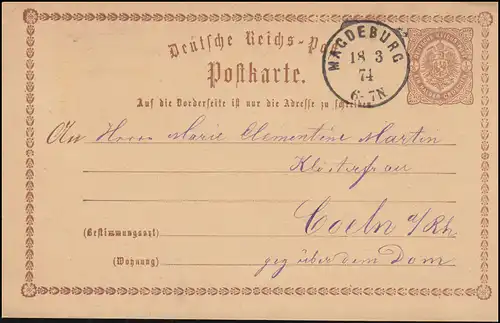 Deutsche Reichs-Post
Postkarte.
MAGDEBURG
18 3
74
6-7N
Auf die Vorderseite ist nur die Adresse zu schreiben.
An Marie Clementine Martin
Klosterfrau
Coeln a/Rh.
(Bestimmungsort)
(Wohnung) gegüber dem Dom